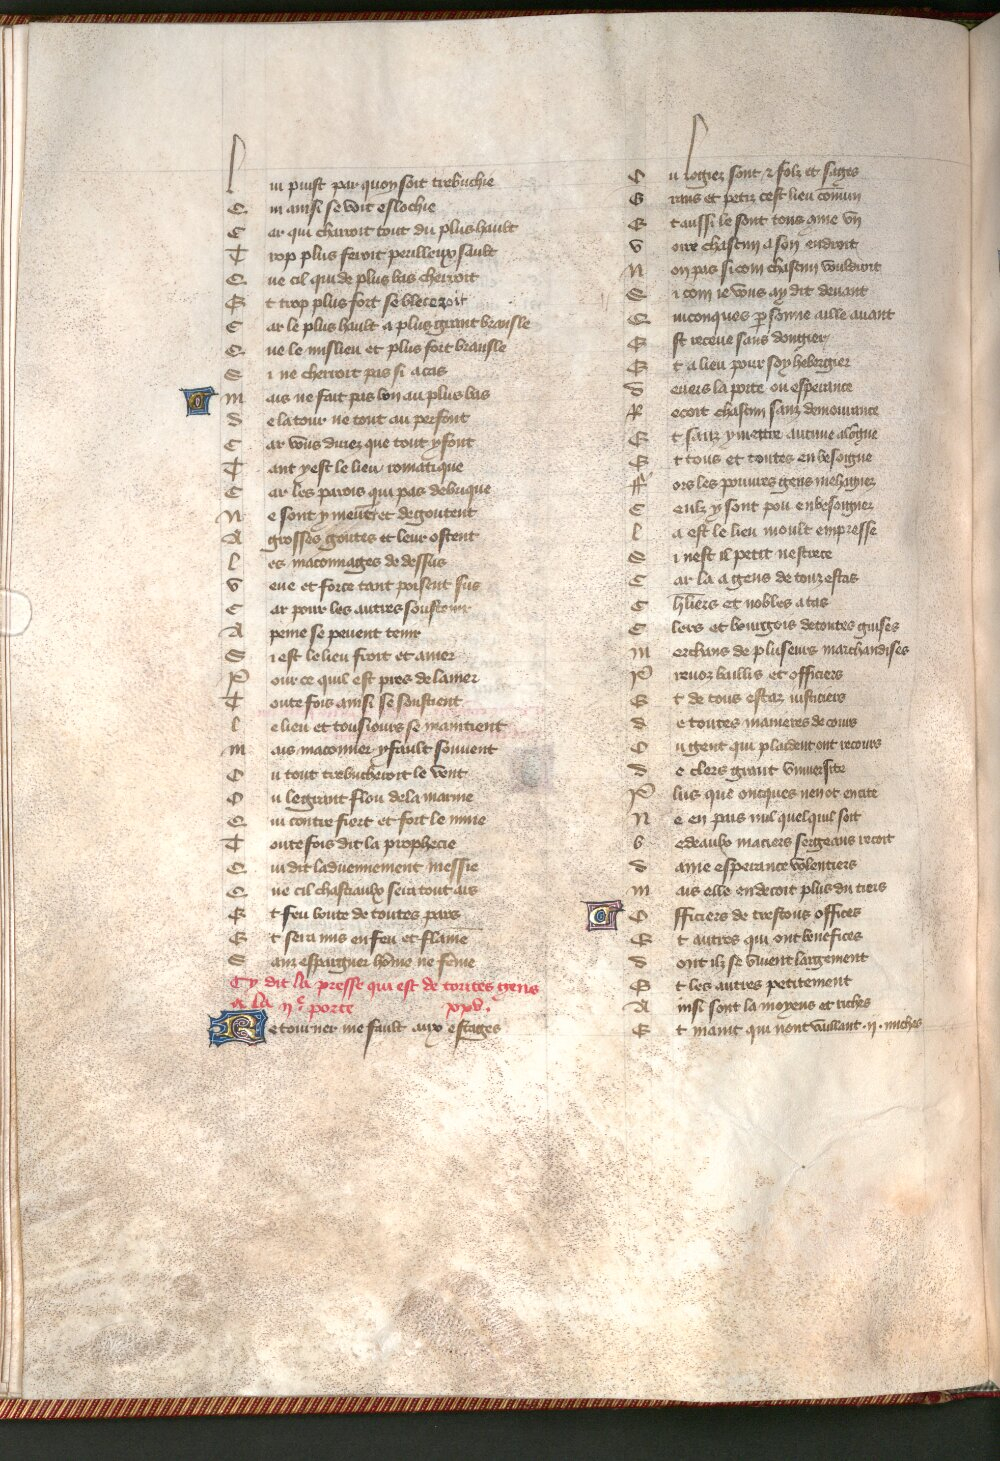 L ui puist par quoy soit trebuchie
Q ui ainsi se voit eslochie
C ar qui charroit tout du plus hault
T rop plus feroit perilleux sault
Q ue cil qui de plus bas cherroit
E t trop plus fort se bleceroit
C ar le plus hault a plus grant bransle
Q ue le mislieu et plus fort bransle
S i ne cherroit pas si a cas
M ais ne fait pas bon au plus bas
D e la tour ne tout au parfont
C ar vous direz que tout y font
T ant y est le lieu romatique
C ar les parois qui pas de brique
N e sont y meurēt et degoutent
A grosses goutes et leur ostent
L es maconnages de dessus
V eue et force tant poisent sus
C ar pour les autres soustenir
A peine se peuent tenir
S i est le lieu froit et amer
P our ce quil est pres de la mer
T oute fois ainsi se soustient
L e lieu et tousiours se maintient
M ais maconner y fault souuent
O u tout trebucheroit le vent
O u le grant flou de la marine
Q ui contre fiert et fort le mine
T oute fois dit la prophecie
Q ui dit laduenement messie
Q ue cil chasteaulx sera tout ars
E t feu boute de toutes pars
E t sera mis en feu et flame
S anz espargner hōme ne fēme
Cy dit la presse qui est de toutes gens
a la ijᵉ porte xxv.
R etourner me fault aux estages
O u logiez sont ⁊ folz et sages
G rans et petiz cest lieu cōmun
E t aussi le sont tous aīne vn
V oire chascun a son endroit
N on pas si com chascun vouldroit
S i com ie vous ay dit deuant
Q uiconques ꝑsonne aille auant
E st receue sans dongier
E t a lieu pour soy hebergier
D euers la porte ou esperance
R ecoit chascun sanz demourance
E t sanz y mettre aucune alōgne
E t tous et toutes en besoigne
ff ors les pouures gens mehagniez
C eulz y sont pou enbesoigniez
L a est le lieu moult empresse
S i nest il petit nestrece
C ar la a gens de touz estas
C hlīers et nobles a tas
C lers et bourgois de toutes guises
M erchans de pluseurs marchandises
P reuoz baillis et officiers
E t de tous estaz iusticiers
D e toutes manieres de cours
O u gent qui plaident ont recours
D e clers grant vniuersite
P lus que oncques nen ot en cite
N e en pais nul quel quil soit
B edeaulx maciers sergeans recoit
D ame esperance volentiers
M ais elle en decoit plus du tiers
O fficiers de trestous offices
E t autres qui ont benefices
D ont ilz se viuent largement
E t les autres petitement
A insi sont la moyens et riches
E t maint qui nont vaillant .ij. miches